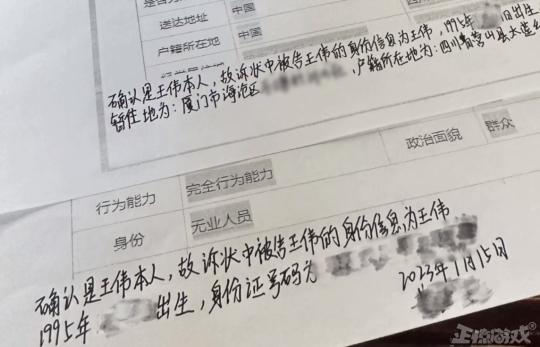 中国
送达地址
中国
户籍所在地
确认是王伟本人,故诉状中被告王伟的身份信息为王伟,1995年 出生
暂住地为:厦门市海沧区 ,户籍所在地为:四川省营山县
行为能力
完全行为能力
政治面貌
群众
身份
无业人员
确认是王伟本人,故诉状中被告王伟的身份信息为王伟
1995年 出生,身份证号码为
2023年1月15日
正惊游戏